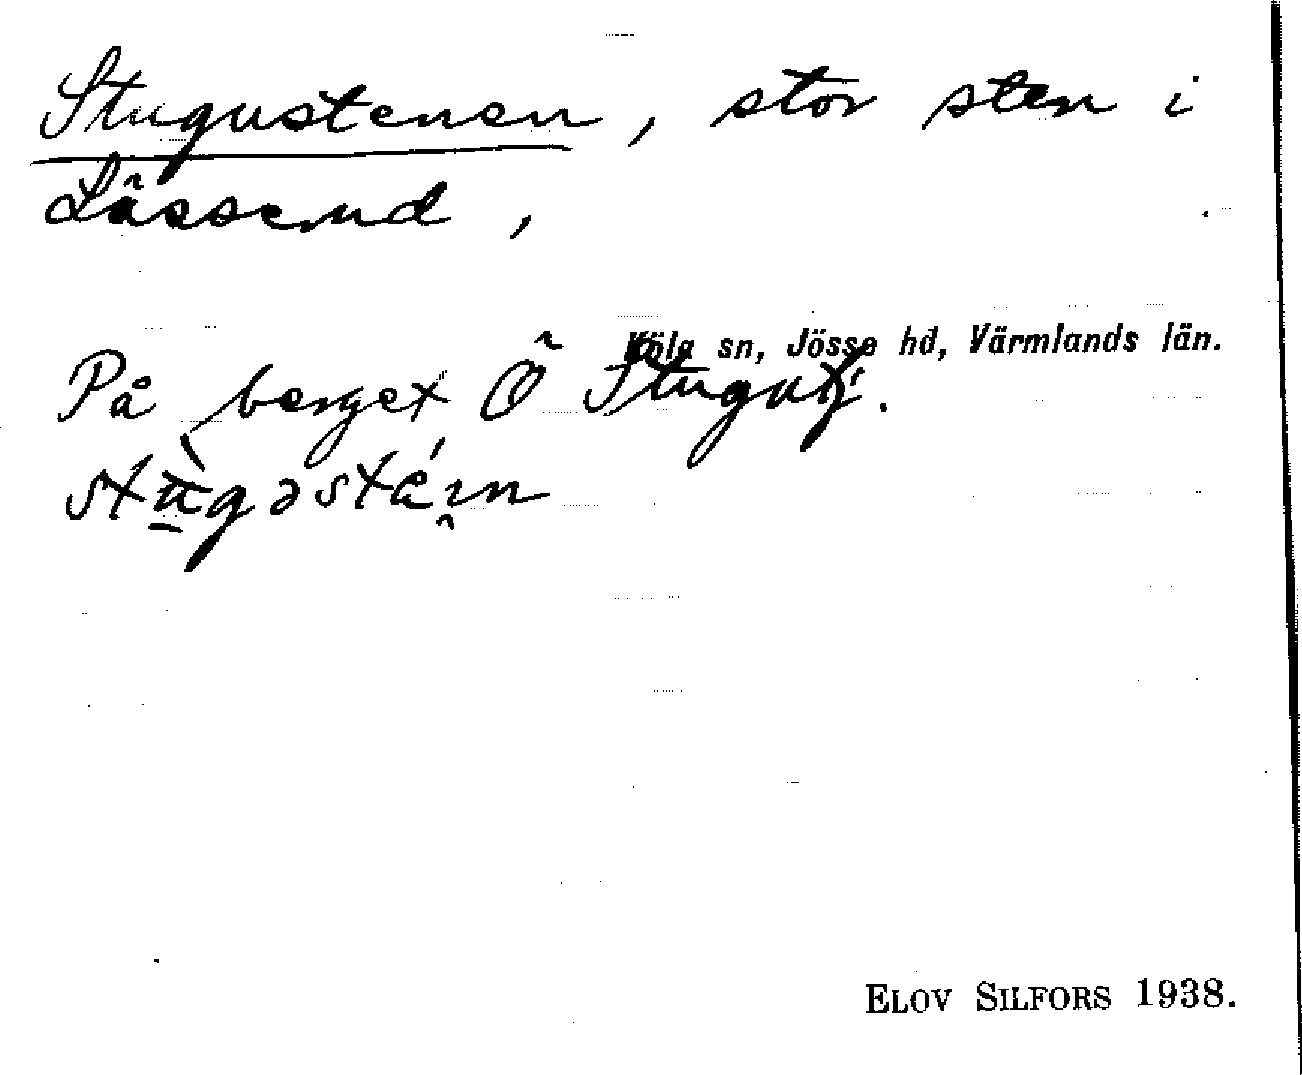 Stugustenen, stor sten i
Lässerud,
Köla sn, Jösse hd, Värmlands län.
På berget Ö
stùgəstéɪn
ELOV SILFORS 1938.